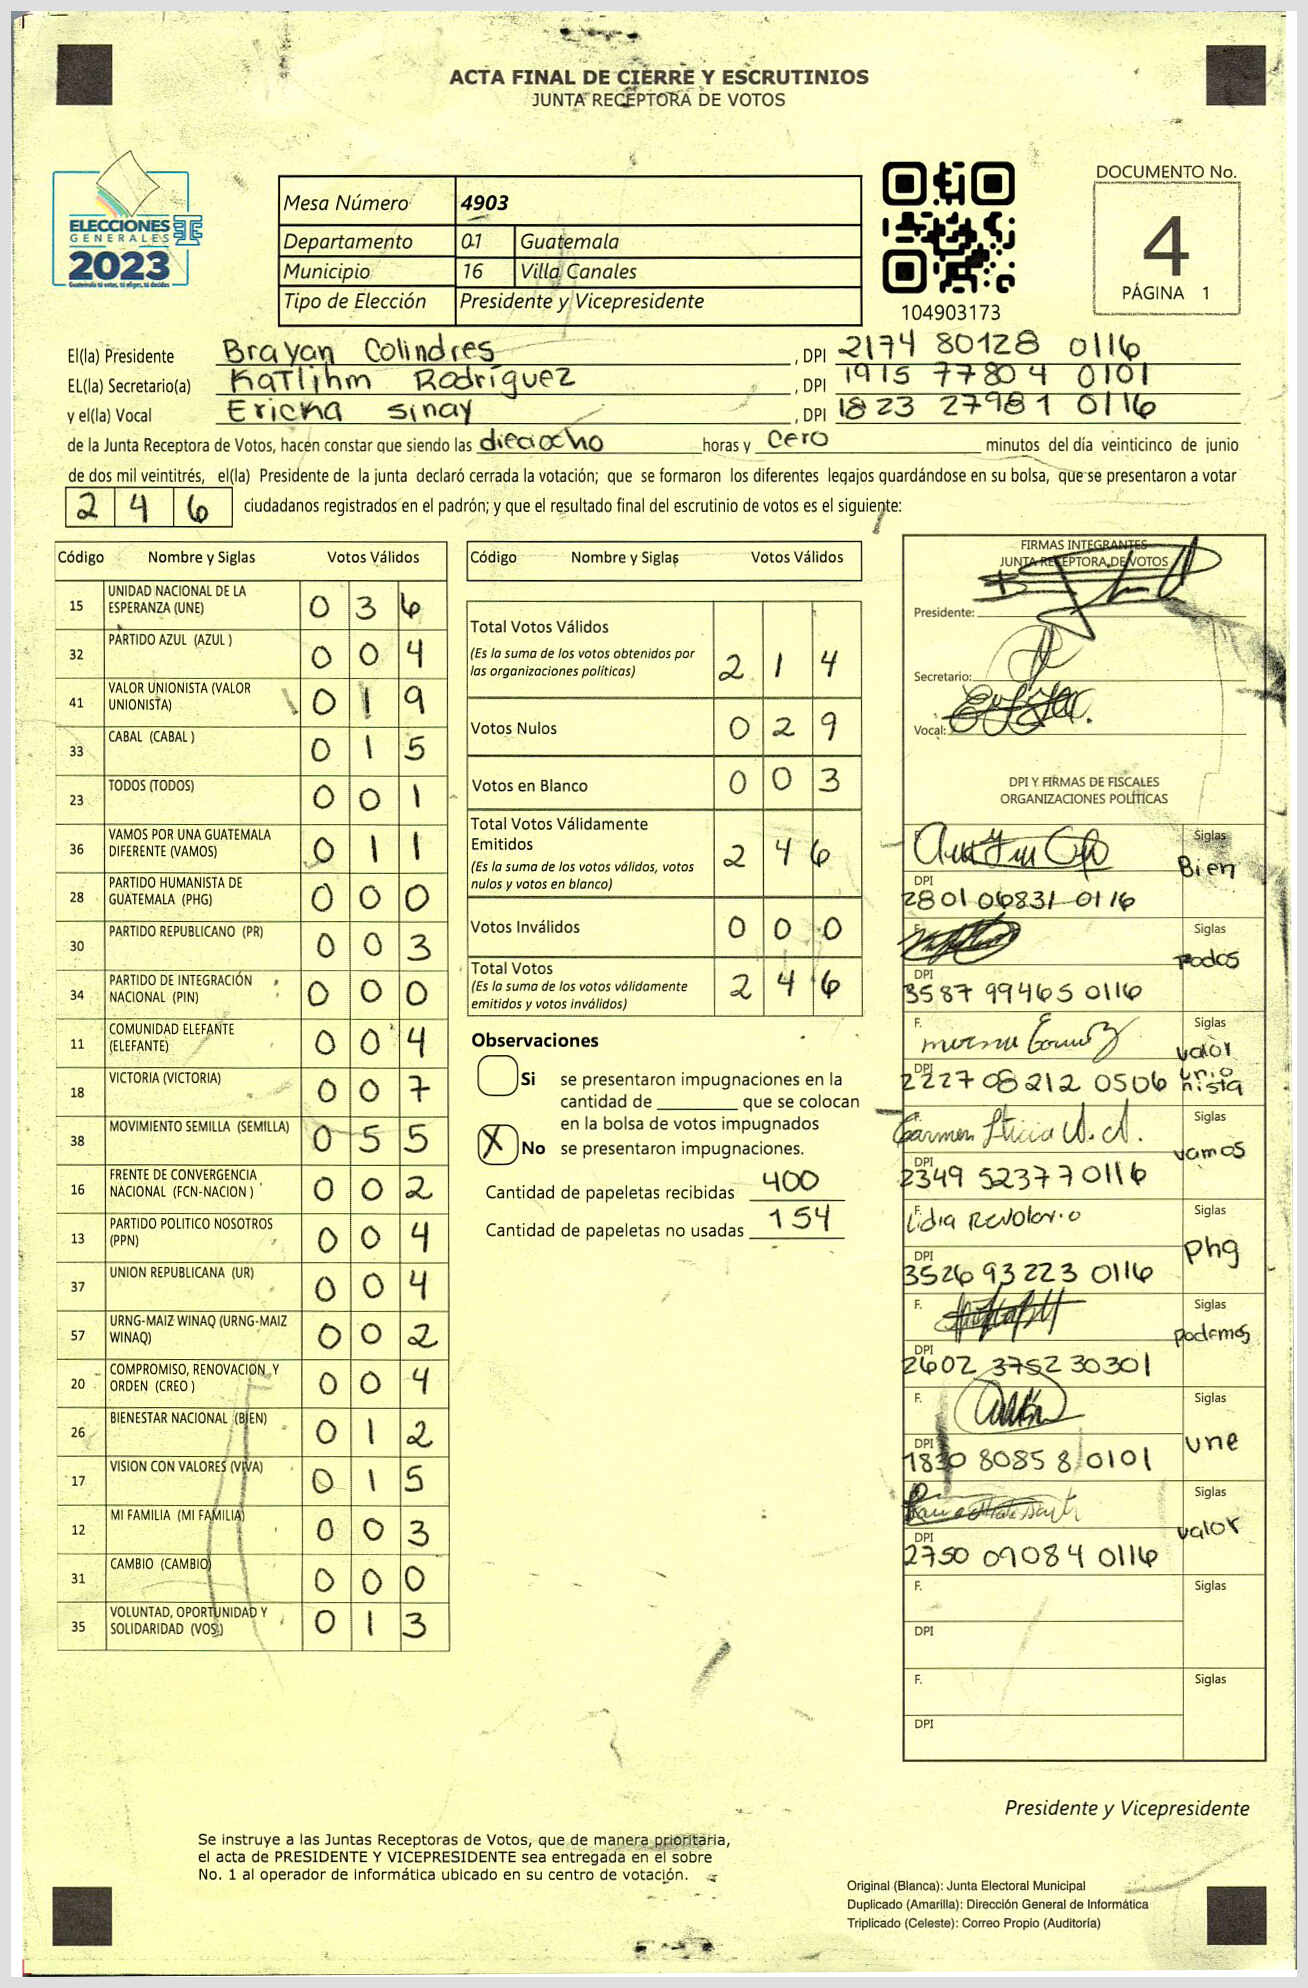 ACTA FINAL DE CIERRE Y ESCRUTINIOS
JUNTA RECEPTORA DE VOTOS
ELECCIONES
GENERALES
2023
Guatemala tú votas, tú eliges, tú decides
Mesa Número 4903
Departamento 01 Guatemala
Municipio 16 Villa Canales
Tipo de Elección Presidente y Vicepresidente
104903173
DOCUMENTO No.
4
PÁGINA 1
El(la) Presidente Brayan Colindres, DPI 2174 80128 0116
EL(la) Secretario(a) Katlihm Rodríguez, DPI 1915 77804 0101
y el(la) Vocal Ericka Sinay, DPI 1823 27981 0116
de la Junta Receptora de Votos, hacen constar que siendo las dieciocho horas y cero minutos del día veinticinco de junio
de dos mil veintitrés, el(la) Presidente de la junta declaró cerrada la votación; que se formaron los diferentes legajos guardándose en su bolsa, que se presentaron a votar
246 ciudadanos registrados en el padrón; y que el resultado final del escrutinio de votos es el siguiente:
Código Nombre y Siglas Votos Válidos
15 UNIDAD NACIONAL DE LA ESPERANZA (UNE) 036
32 PARTIDO AZUL (AZUL ) 004
41 VALOR UNIONISTA (VALOR UNIONISTA) 019
33 CABAL (CABAL ) 015
23 TODOS (TODOS) 001
36 VAMOS POR UNA GUATEMALA DIFERENTE (VAMOS) 011
28 PARTIDO HUMANISTA DE GUATEMALA (PHG) 000
30 PARTIDO REPUBLICANO (PR) 003
34 PARTIDO DE INTEGRACIÓN NACIONAL (PIN) 000
11 COMUNIDAD ELEFANTE (ELEFANTE) 004
18 VICTORIA (VICTORIA) 007
38 MOVIMIENTO SEMILLA (SEMILLA) 055
16 FRENTE DE CONVERGENCIA NACIONAL (FCN-NACION ) 002
13 PARTIDO POLITICO NOSOTROS (PPN) 004
37 UNION REPUBLICANA (UR) 004
57 URNG-MAIZ WINAQ (URNG-MAIZ WINAQ) 002
20 COMPROMISO, RENOVACION Y ORDEN (CREO ) 004
26 BIENESTAR NACIONAL (BIEN) 012
17 VISION CON VALORES (VIVA) 015
12 MI FAMILIA (MI FAMILIA) 003
31 CAMBIO (CAMBIO) 000
35 VOLUNTAD, OPORTUNIDAD Y SOLIDARIDAD (VOS) 013
Código Nombre y Siglas Votos Válidos
Total Votos Válidos 214
(Es la suma de los votos obtenidos por
las organizaciones políticas)
Votos Nulos 029
Votos en Blanco 003
Total Votos Válidamente
Emitidos 246
(Es la suma de los votos válidos, votos
nulos y votos en blanco)
Votos Inválidos 000
Total Votos 246
(Es la suma de los votos válidamente
emitidos y votos inválidos)
Observaciones
Si se presentaron impugnaciones en la
cantidad de ________ que se colocan
en la bolsa de votos impugnados
X No se presentaron impugnaciones.
Cantidad de papeletas recibidas 400
Cantidad de papeletas no usadas 154
FIRMAS INTEGRANTES
JUNTA RECEPTORA DE VOTOS
Presidente:
Secretario:
Vocal:
DPI Y FIRMAS DE FISCALES
ORGANIZACIONES POLÍTICAS
F. Siglas Bien
DPI 2801 06831 0116
F. Siglas Todos
DPI 3587 99465 0116
F. Siglas valor unionista
DPI 2227 08212 0506
F. Carmen Siglas vamos
DPI 2349 52377 0116
F. Lidia Revolorio Siglas phg
DPI 3526 93223 0116
F. Siglas podemos
DPI 2602 37523 0301
F. Siglas une
DPI 1830 80858 0101
F. Siglas valor
DPI 2750 09084 0116
F. Siglas
DPI
F. Siglas
DPI
Presidente y Vicepresidente
Se instruye a las Juntas Receptoras de Votos, que de manera prioritaria,
el acta de PRESIDENTE Y VICEPRESIDENTE sea entregada en el sobre
No. 1 al operador de informática ubicado en su centro de votación.
Original (Blanca): Junta Electoral Municipal
Duplicado (Amarilla): Dirección General de Informática
Triplicado (Celeste): Correo Propio (Auditoría)